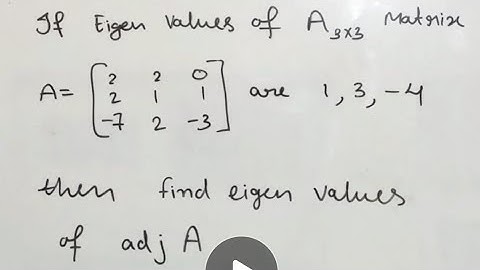 If Eigen Values of A3x3 Matrix
A= [2 2 0
2 1 1
-7 2 -3] are 1, 3, -4
then find eigen values
of adj A